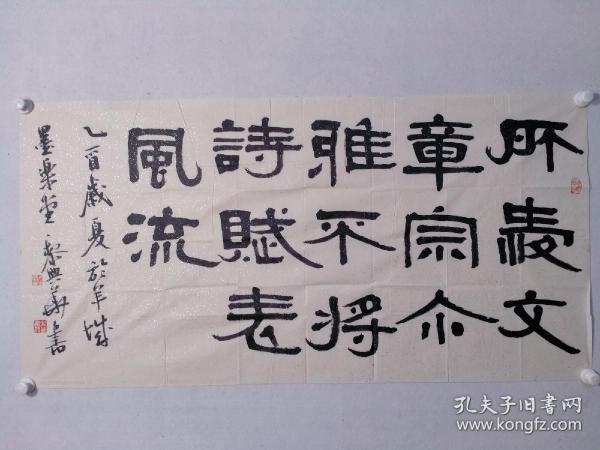 所愛文
章宗尒
雅不將
詩賦表
風流
乙酉歲夏於羊城
墨樂堂黎興華書
孔夫子旧书网
www.kongfz.com